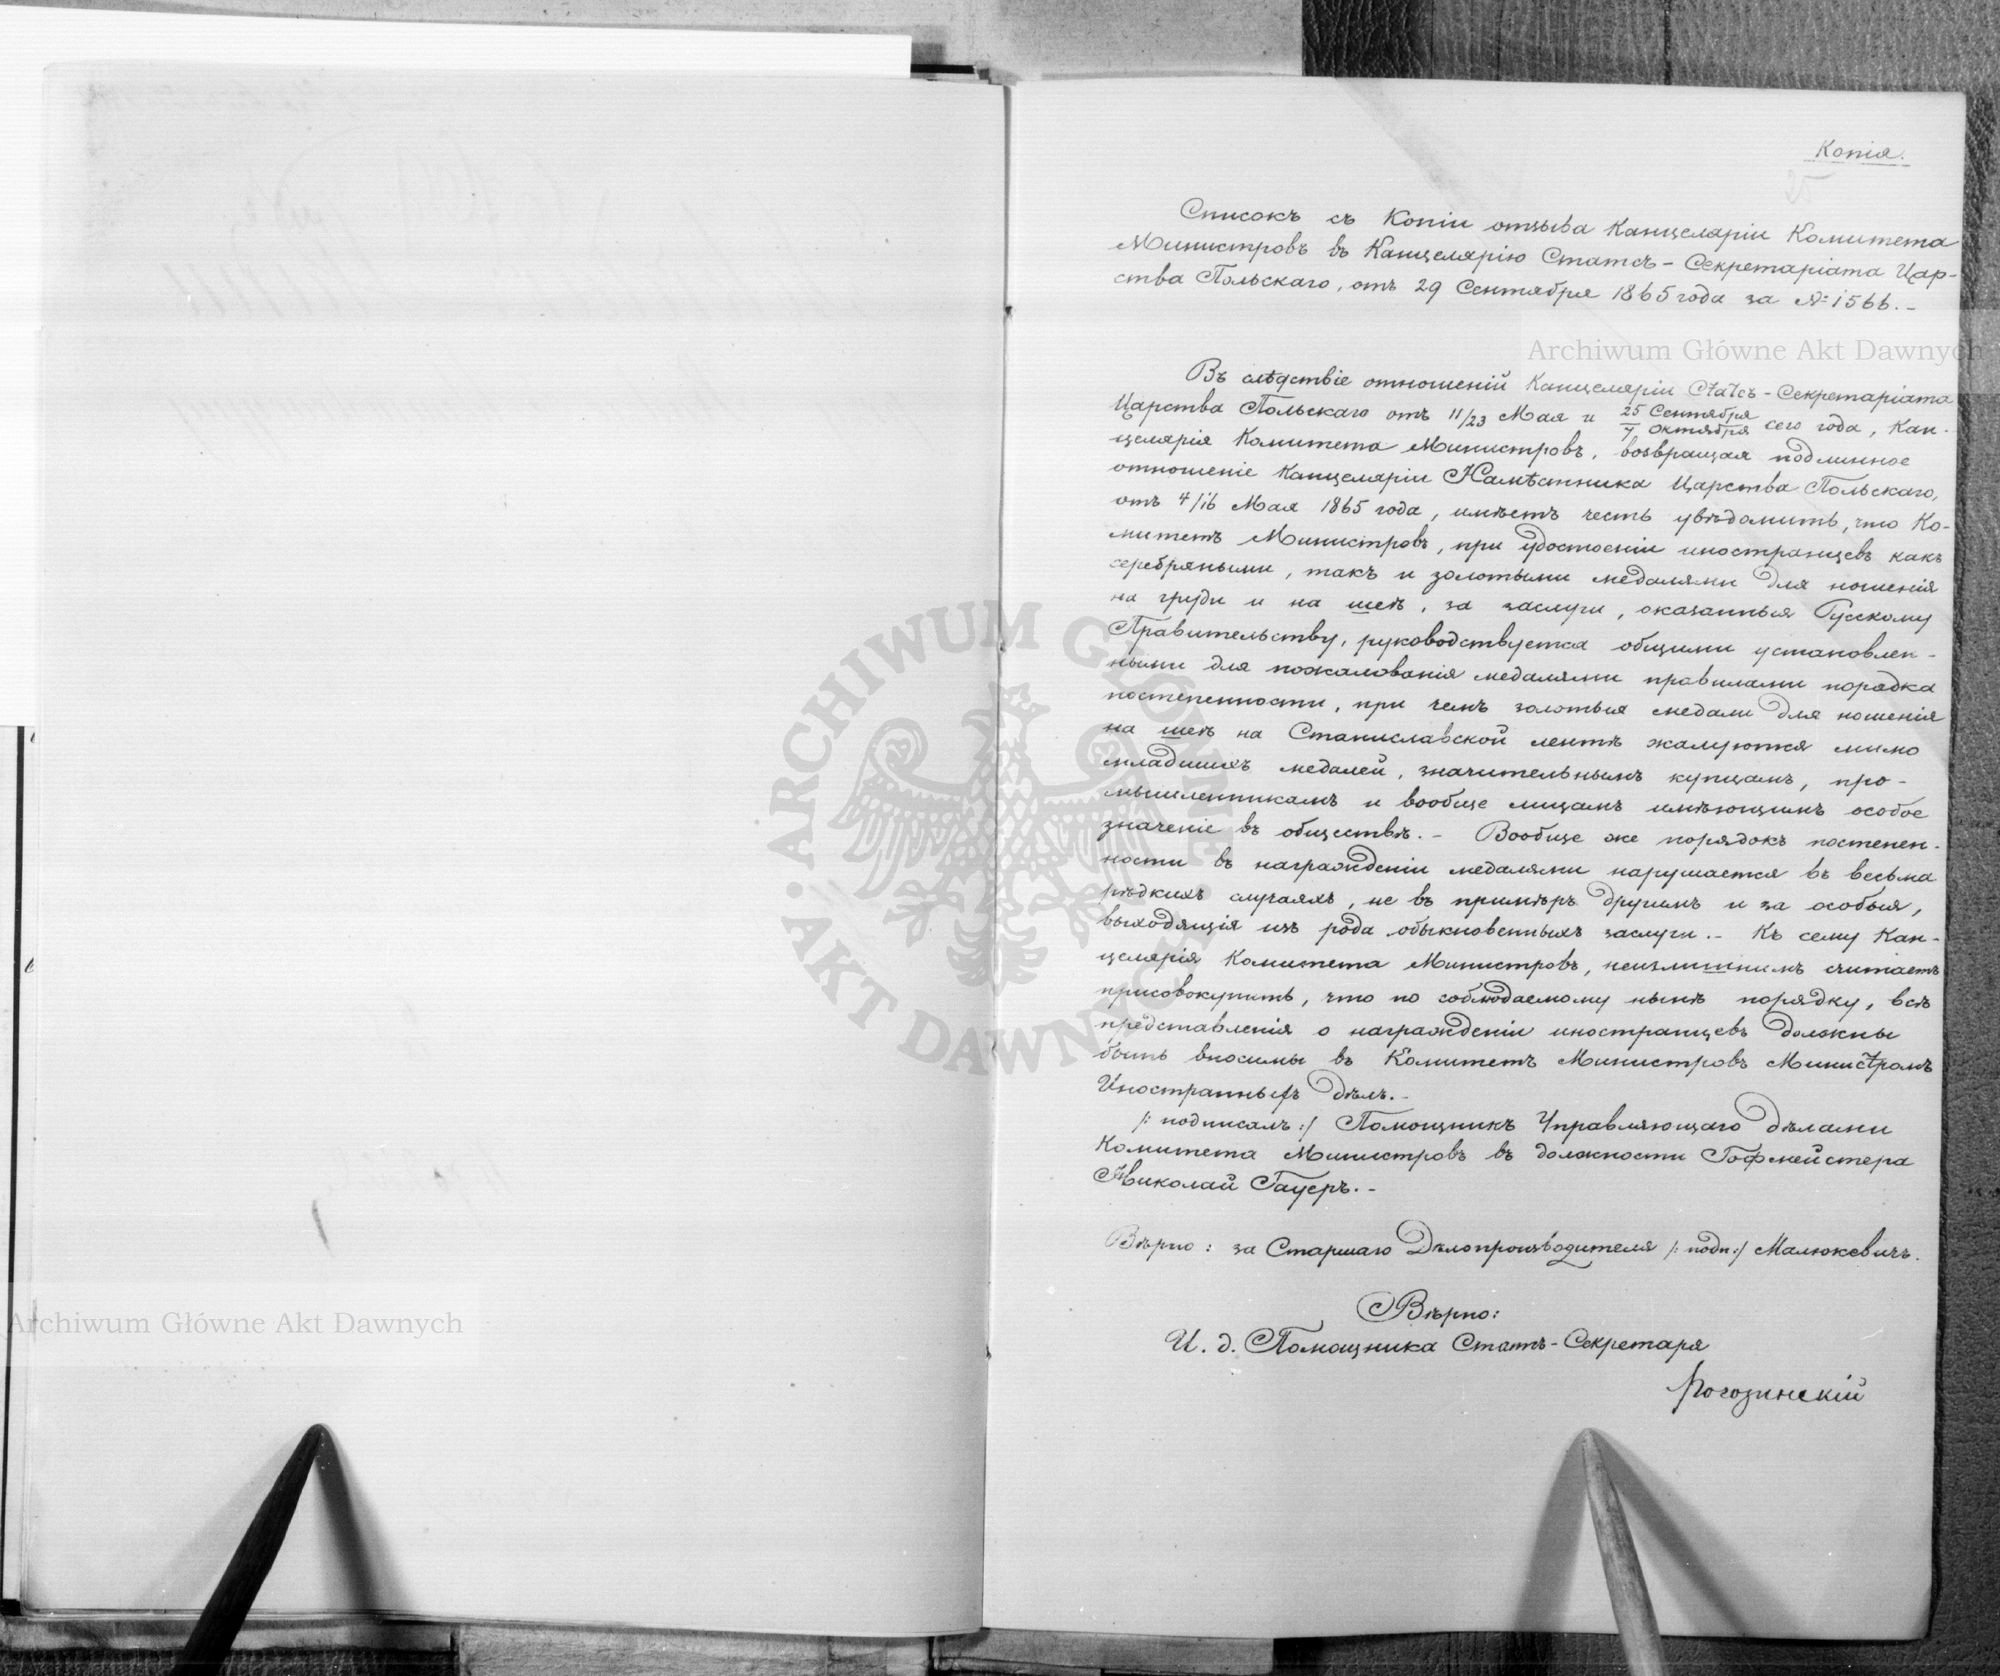 Копія.
25
Списокъ съ Копіи отзыва Канцеляріи Комитета
Министровъ въ Канцелярію Статсъ-Секретаріата Цар-
ства Польскаго, отъ 29 Сентября 1865 года за №: 1566.-
Archiwum Główne Akt Dawnych
Въ слѣдствіе отношеній Канцеляріи Статсъ-Секретаріата
Царства Польскаго отъ 11/23 Мая и 25 Сентября/7 Октября сего года, Кан-
целярія Комитета Министровъ, возвращая подлинное
отношеніе Канцеляріи Намѣстника Царства Польскаго,
отъ 4/16 Мая 1865 года, имѣетъ честь увѣдомить, что Ко-
митетъ Министровъ, при удостоеніи иностранцевъ какъ
серебряными, такъ и золотыми медалями для ношенія
на груди и на шеѣ, за заслуги, оказанныя Русскому
Правительству, руководствуется общими установлен-
ными для пожалованія медалями правилами порядка
постепенности, при чемъ золотыя медали для ношенія
на шеѣ на Станиславской лентѣ жалуются мимо
младшихъ медалей, значительнымъ купцамъ, про-
мышленникамъ и вообще лицамъ имѣющимъ особое
значеніе въ обществѣ.- Вообще же порядокъ постепен-
ности въ награжденіи медалями нарушается въ весьма
рѣдкихъ случаяхъ, не въ примѣръ другимъ и за особыя,
выходящія изъ рода обыкновенныхъ заслуги.- Къ сему Кан-
целярія Комитета Министровъ, неизлишнимъ считаетъ
присовокупить, что по соблюдаемому нынѣ порядку, всѣ
представленія о награжденіи иностранцевъ должны
быть вносимы въ Комитетъ Министровъ Министромъ
Иностранныхъ дѣлъ.-
/: подписалъ :/ Помощникъ Управляющаго дѣлами
Комитета Министровъ въ должности Гофмейстера
Николай Гауеръ.-
Вѣрно: за Старшаго Дѣлопроизводителя /: подп :/ Малюкевичъ.
Вѣрно:
И. д. Помощника Статсъ-Секретаря
Рогозинскій
ARCHIWUM GŁÓWNE AKT DAWNYCH
Archiwum Główne Akt Dawnych